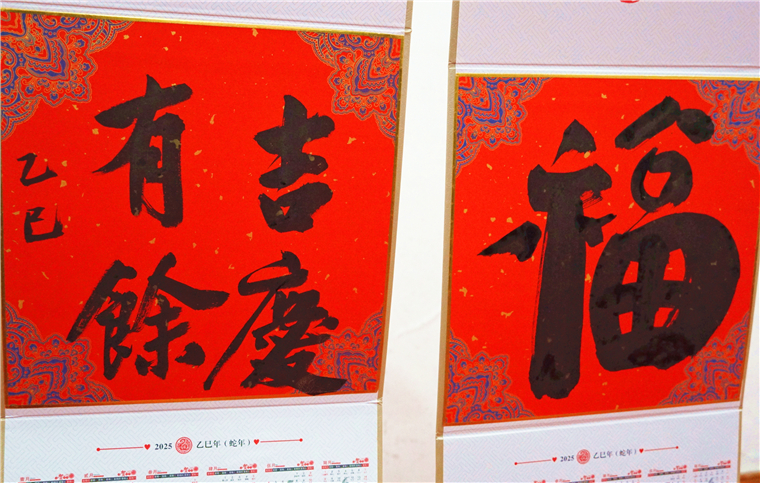 吉慶
有餘
乙巳
2025 乙巳年(蛇年)
福
2025 乙巳年(蛇年)